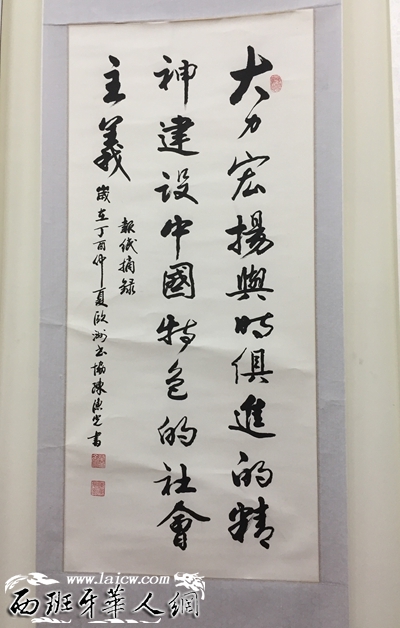 大力宏揚與時俱進的精
神建设中國特色的社會
主義
報纸摘録
歲在丁酉仲夏欧洲书協陳
书
www.laicw.com
西班牙華人網